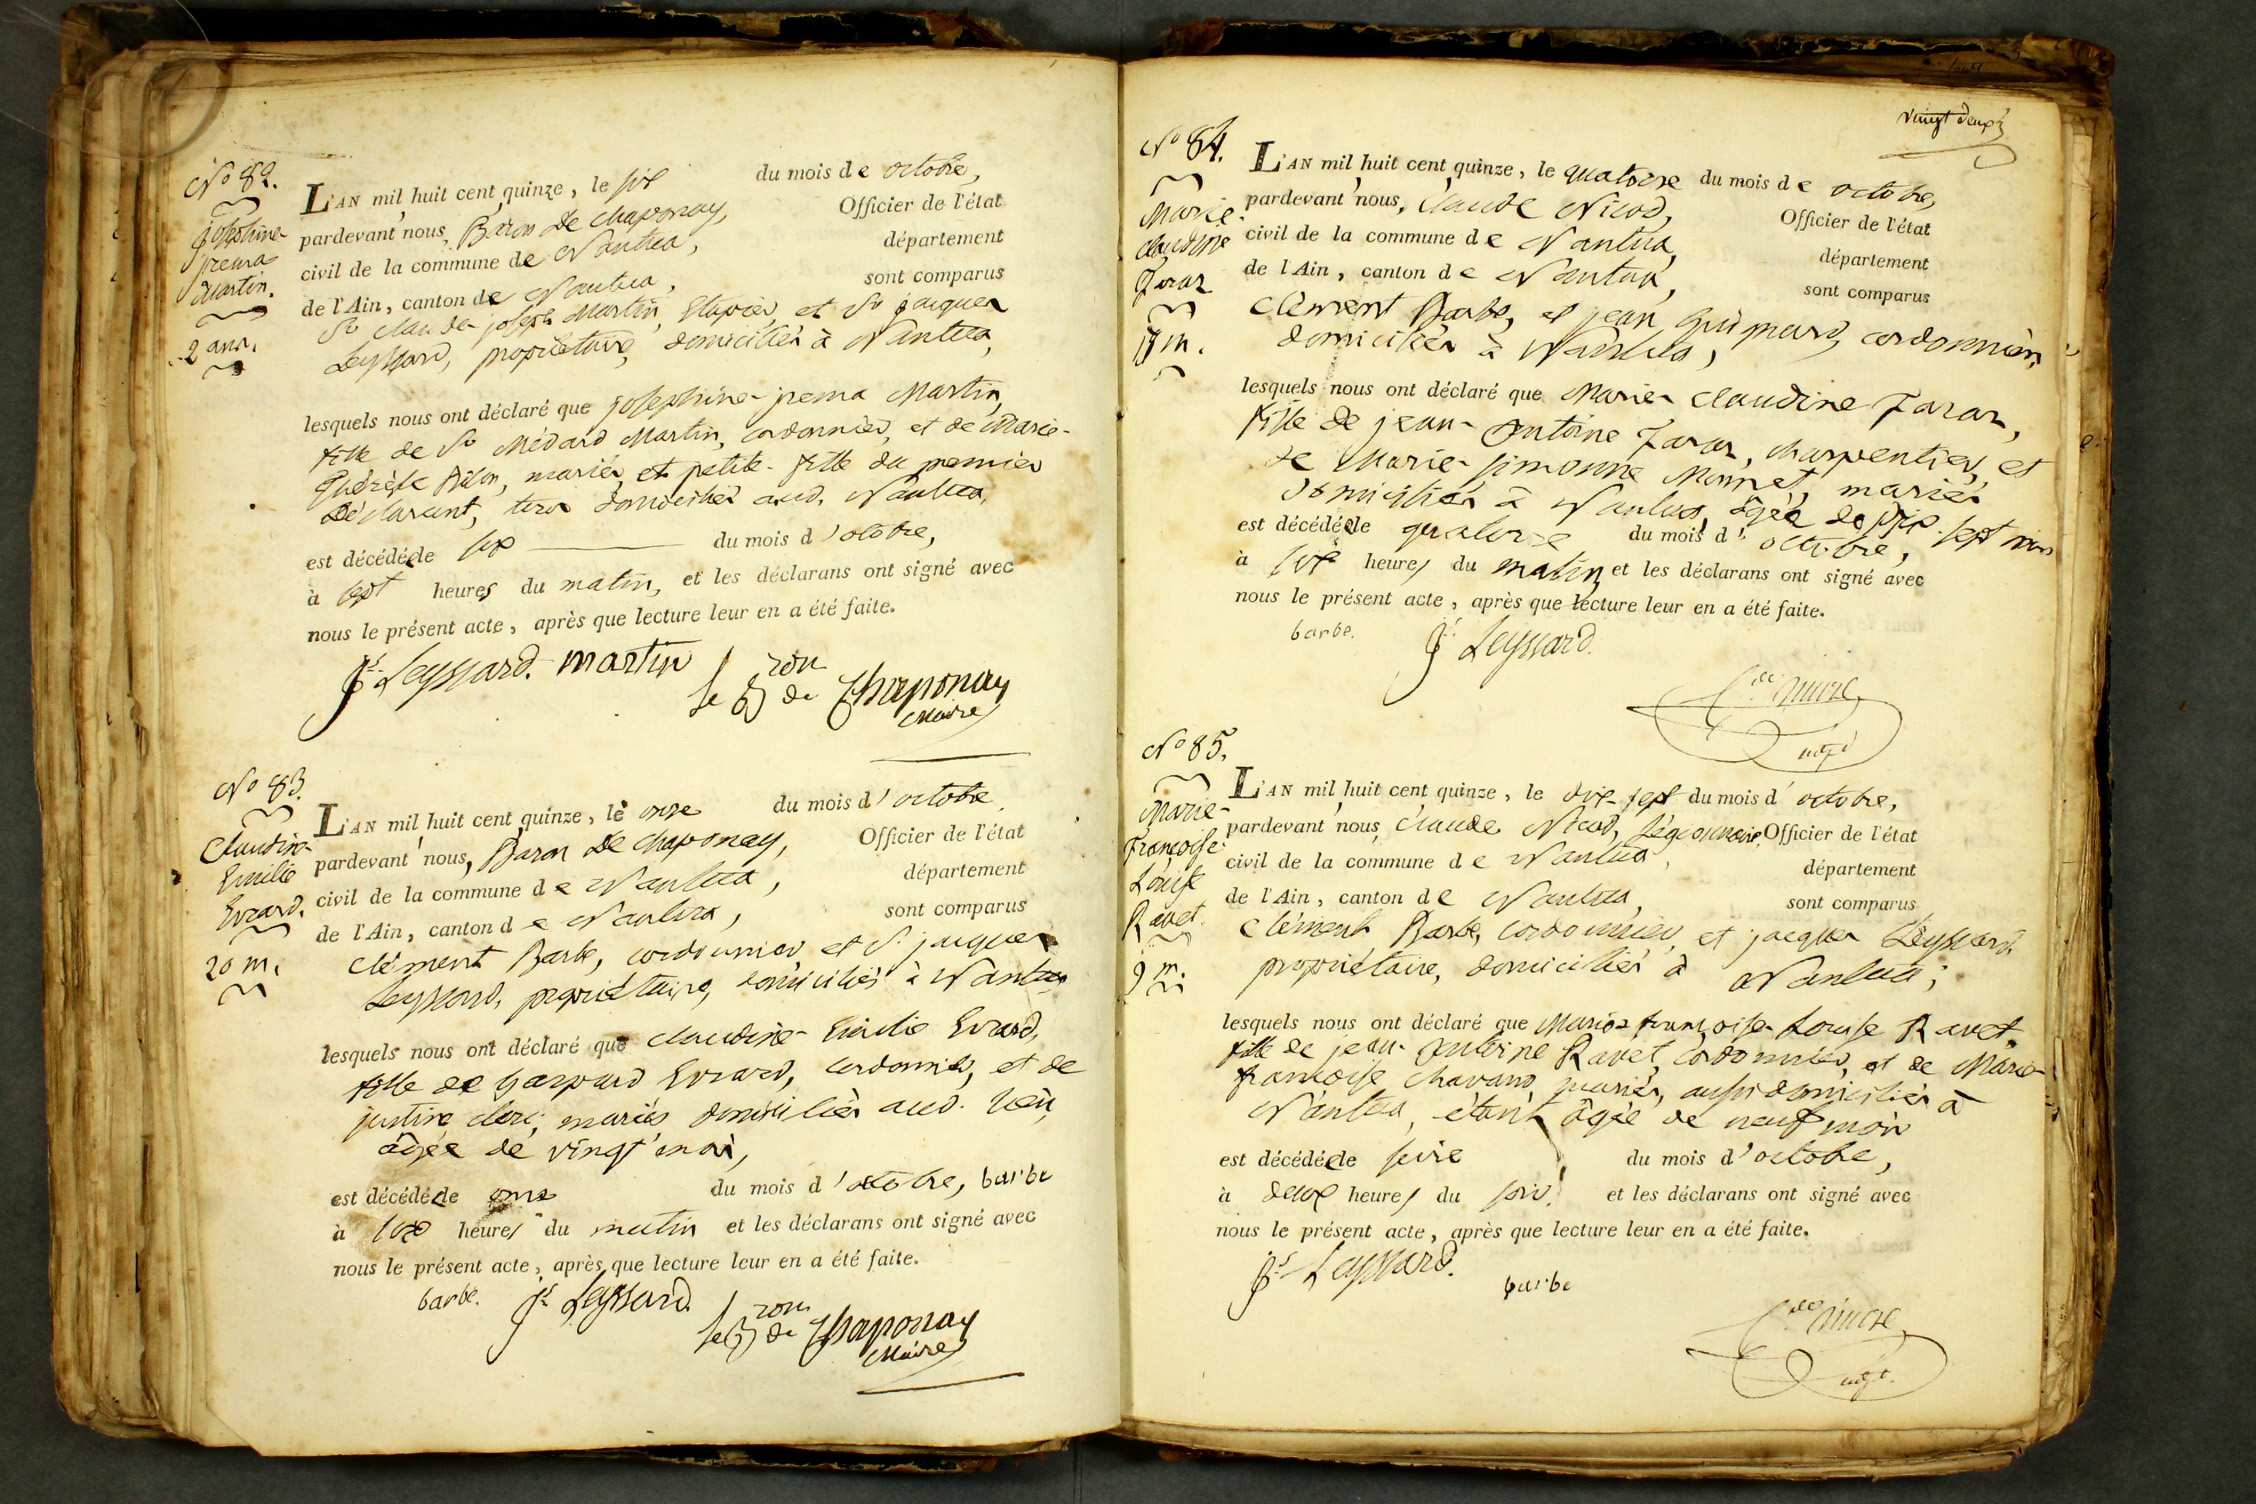 N° 82.
Josephine
jrema
Martin.
2 ans.
L'AN mil huit cent quinze, le six du mois de octobre,
pardevant nous, Baron De Chaponay, Officier de l'état
civil de la commune de Nantua, département
de l'Ain, canton de Nantua, sont comparus
Sr claude joseph Martin, et Sr jacques
Leyssard, propriétaire, domiciliés à Nantua,
lesquels nous ont déclaré que josephine jrema Martin,
fille de Sr Médard Martin, cordonnier, et de Marie-
Thérèse, mariés, et petite-fille du premier
Déclarant, tous domiciliés aud. Nantua,
est décédée le six du mois d'octobre,
à sept heures du matin, et les déclarans ont signé avec
nous le présent acte, après que lecture leur en a été faite.
Js. Leyssard. martin
le Bron de Chaponay
Maire
N° 83.
Claudine
Emilie
Evrard.
20 m.
L'AN mil huit cent quinze, le onze du mois d'octobre,
pardevant nous, Baron De Chaponay, Officier de l'état
civil de la commune de Nantua, département
de l'Ain, canton de Nantua, sont comparus
Clément Barbe, cordonnier, et Sr. jacques
Leyssard, propriétaire, domiciliés à Nantua
lesquels nous ont déclaré que claudine Emilie Evrard,
fille de Gaspard Evrard, cordonnier, et de
justine clerc, mariés domiciliés aud. lieu,
âgée de vingt mois,
est décédée le onze du mois d'octobre, barbe
à six heures du matin et les déclarans ont signé avec
nous le présent acte, après que lecture leur en a été faite.
barbe. Js. Leyssard.
le Bron de Chaponay
Maire
vingt deux
N° 84.
Marie
claudine
17 m.
L'AN mil huit cent quinze, le quatorze du mois de octobre,
pardevant nous, Claude Nicod, Officier de l'état
civil de la commune de Nantua, département
de l'Ain, canton de Nantua, sont comparus
Clément Barbe, et jean, cordonniers,
domiciliés à Nantua,
lesquels nous ont déclaré que Marie claudine
fille de jean-Antoine, charpentier, et
de Marie-simonne Monnet, mariés
domiciliés à Nantua, âgée de dix sept mois
est décédée le quatorze du mois d'octobre,
à six heures du matin, et les déclarans ont signé avec
nous le présent acte, après que lecture leur en a été faite.
barbe. Js. Leyssard.
N° 85.
Marie-
françoise
Louise
Ravet.
9 m.
L'AN mil huit cent quinze, le dix-sept du mois d'octobre,
pardevant nous, Claude Nicod, Légionnaire, Officier de l'état
civil de la commune de Nantua, département
de l'Ain, canton de Nantua, sont comparus
Clément Barbe, cordonnier, et jacques Leyssard,
propriétaire, domiciliés à Nantua;
lesquels nous ont déclaré que Marie françoise Louise Ravet,
fille de jean-Antoine Ravet, cordonnier, et de Marie-
françoise Chavand mariés, aussi domiciliés à
Nantua, étant âgée de neuf mois
est décédée le seize du mois d'octobre,
à deux heures du soir, et les déclarans ont signé avec
nous le présent acte, après que lecture leur en a été faite.
Js. Leyssard.
barbe